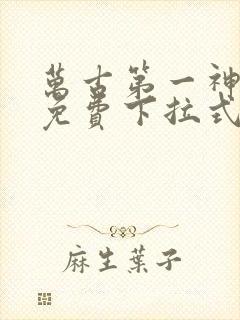 萬古第一神
免費下拉式
麻生葉子